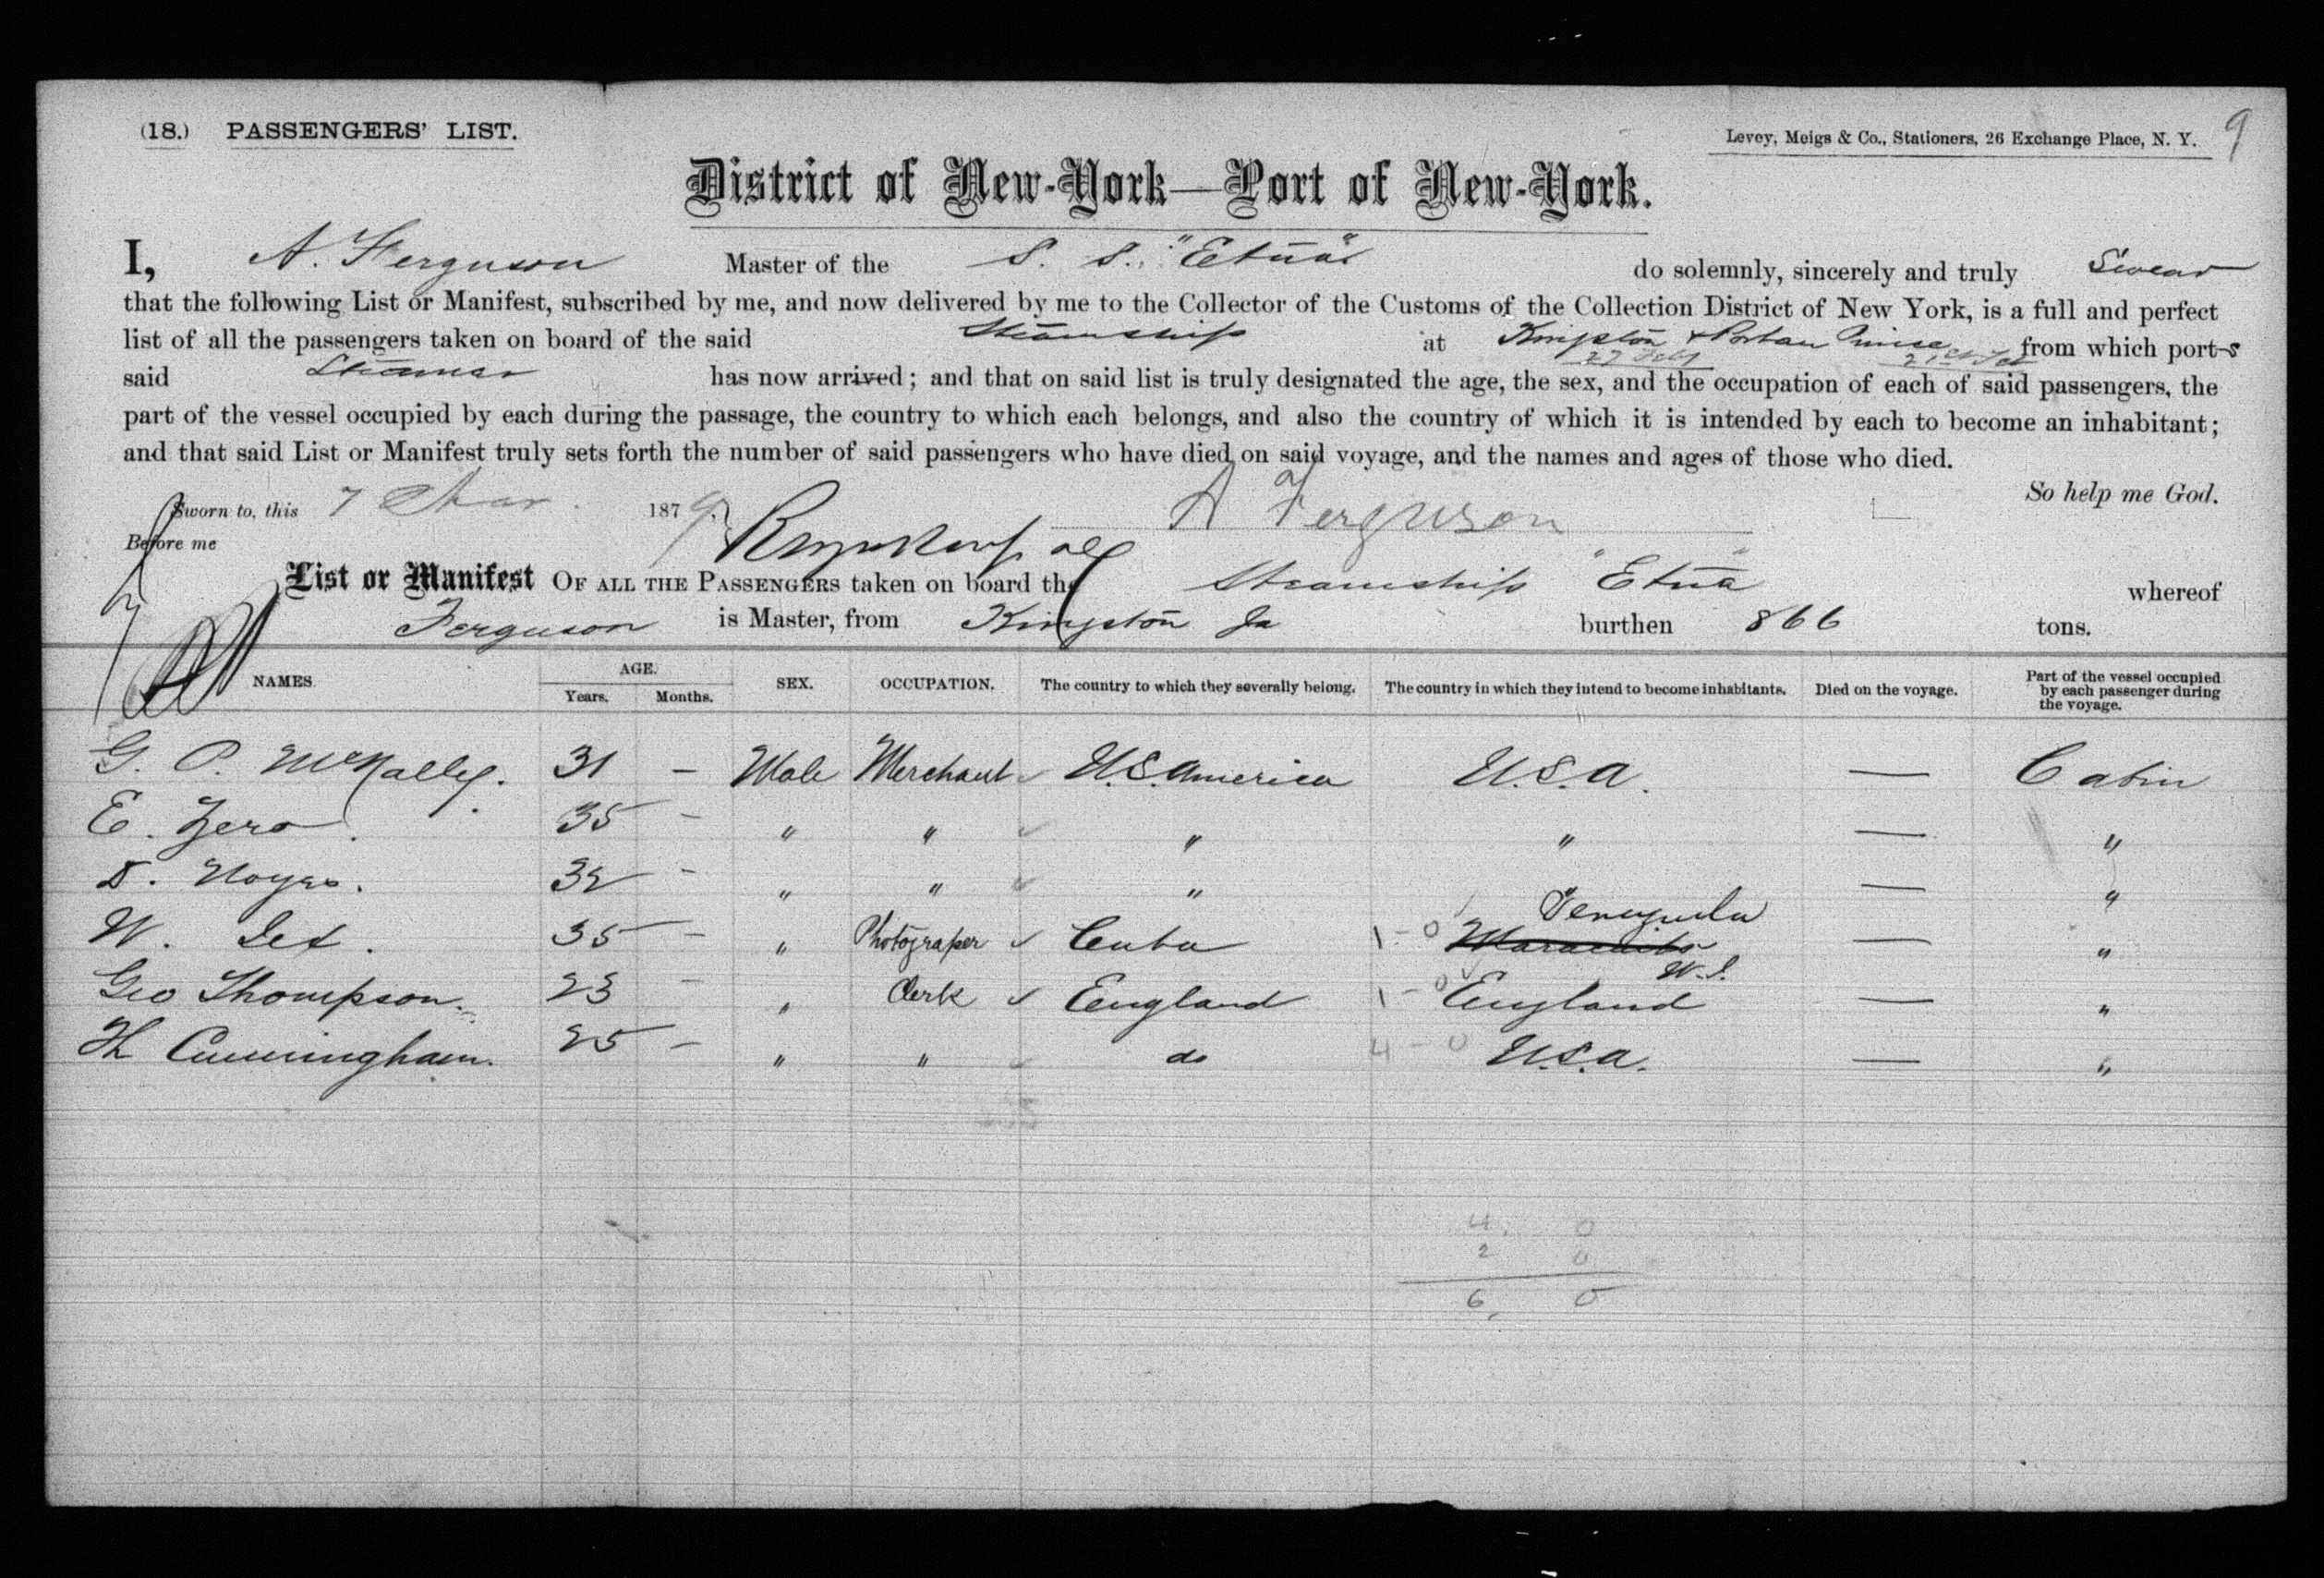 (18.) PASSENGERS' LIST.
Levey, Meigs & Co., Stationers, 26 Exchange Place, N. Y. 9
District of New-York—Port of New-York.
I, A. Ferguson Master of the S. S. "Etna" do solemnly, sincerely and truly Swear
that the following List or Manifest, subscribed by me, and now delivered by me to the Collector of the Customs of the Collection District of New York, is a full and perfect
list of all the passengers taken on board of the said Steamship at Kingston & Portau Prince from which port-s
27 Feby 21st Feb
said Steamer has now arrived; and that on said list is truly designated the age, the sex, and the occupation of each of said passengers, the
part of the vessel occupied by each during the passage, the country to which each belongs, and also the country of which it is intended by each to become an inhabitant;
and that said List or Manifest truly sets forth the number of said passengers who have died on said voyage, and the names and ages of those who died.
So help me God.
Sworn to, this 7 Mar 1879, A Ferguson
Before me
List or Manifest OF ALL THE PASSENGERS taken on board the Steamship "Etna" whereof
Ferguson is Master, from Kingston Ja burthen 866 tons.
NAMES. AGE. Years. Months. SEX. OCCUPATION. The country to which they severally belong. The country in which they intend to become inhabitants. Died on the voyage. Part of the vessel occupied by each passenger during the voyage.
G. P. McNally. 31 – Male Merchant U.S. America U.S.A. — Cabin
E. Zero. 35 – " " " " — "
D. Noyes. 32 – " " " " — "
Venezuela
W. Det. 35 – " Photograper Cuba 1 - 0 Maracaibo — "
W. I.
Geo Thompson. 23 – " Clerk England 1 - 0 England — "
H Cunningham. 25 – " " do 4 - 0 U.S.A. — "
4 0
2 0
6 0